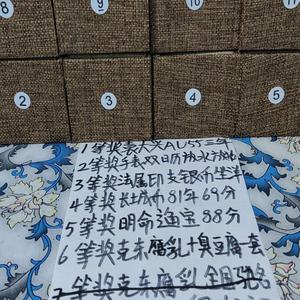 8 9 10 11
2 3 4 5
1等奖表大义AU55三年
2等奖手表双日历放水
3等奖法属印支银币坐洋
4等奖长城币81年69分
5等奖明命通宝88分
6等奖克东腐乳+臭豆腐一套
等奖克东腐乳